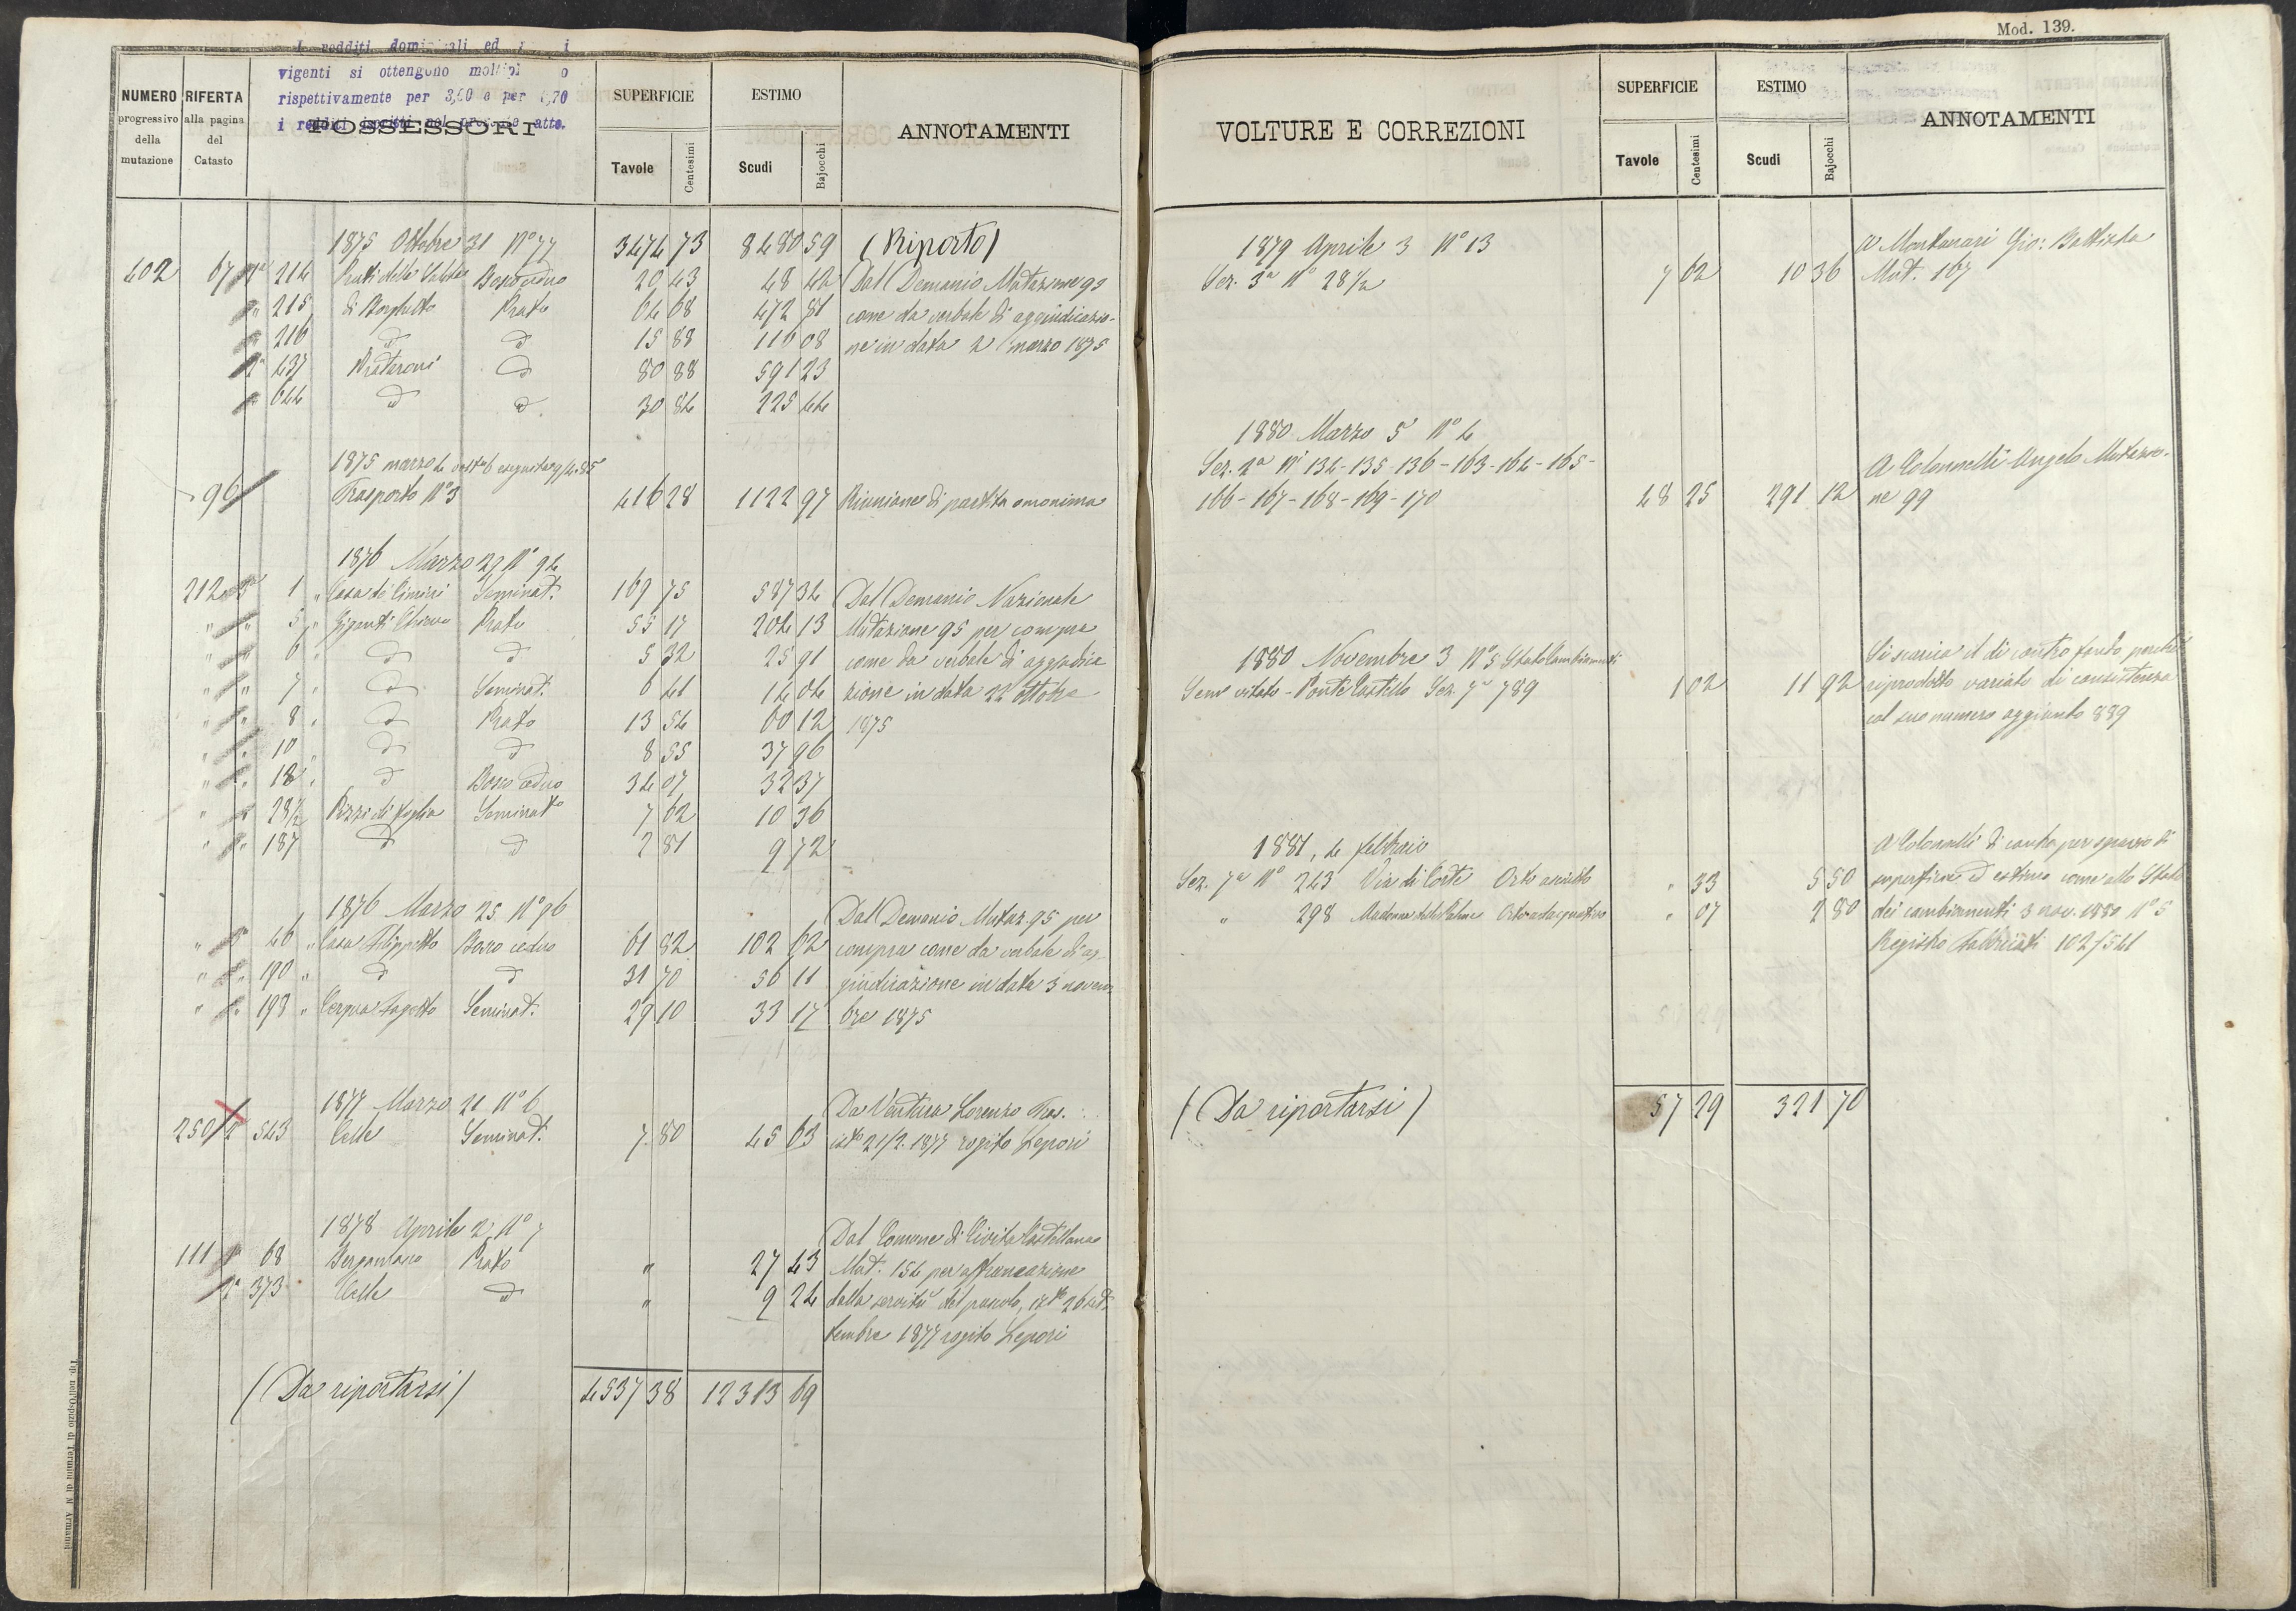 Mod. 139.
I redditi dominicali ed
vigenti si ottengono
rispettivamente per 3,60 e per 0,70
i redditi iscritti nel presente atto.
NUMERO progressivo della mutazione
RIFERTA alla pagina del Catasto
POSSESSORI
SUPERFICIE
Tavole Centesimi
ESTIMO
Scudi Bajocchi
ANNOTAMENTI
1875 Ottobre 31 N° 77 3474 73 8480 59 (Riporto)
402 67 214 Prati della Bosco ceduo 20 43 48 Dal Demanio Mutazione 95
215 di Borghetto Prato 64 68 472 81 come da verbale di aggiudicazio-
216 d d 15 88 116 08 ne in data 2 marzo 1875
437 Prataroni d 80 88 591 23
644 d d 30 84 225 44
1875 marzo
96 Trasporto N° 3 416 28 1122 97 Riunione di partita omonima
1876 Marzo 29 N° 94
212 1 " Casa de Cimiri Seminat. 169 75 587 34 Dal Demanio Nazionale
" " 5 " Giganti Prato 55 17 204 13 Mutazione 95 per compra
" " 6 " d d 5 32 25 91 come da verbale di aggiudica
" " 7 " d Seminat. 6 41 14 04 zione in data 22 ottobre
" " 8 " d Prato 13 54 60 12 1875
" " 10 " d d 8 55 37 96
" " 18 " d Bosco ceduo 34 07 32 37
" " 28 1/2 Pizzi di foglia Seminato 7 62 10 36
" " 187 d d 2 81 9 72
1876 Marzo 25 N° 96 Dal Demanio Mutaz. 95 per
" 46 " Casa Filippetto Bosco ceduo 61 82 102 62 compra come da verbale di ag-
" " 190 " d d 31 70 56 11 giudicazione in data 3 novem
" " 193 " Cerqua Fagetto Seminat. 29 10 33 17 bre 1875
1877 Marzo 21 N° 6 Da Ventura Lorenzo
250 2 543 Celle Seminat. 7 80 45 63 isto 21/2. 1877 rogito Lepori
1878 Aprile 2 N° 7 Dal Comune di Civita Castellana
111 68 Bergantaro Prato " 27 43 Mut. 154 per affrancazione
373 Valle d " 9 24 dalla servitù del pascolo, isto 26 set-
tembre 1877 rogito Lepori
(Da riportarsi) 4537 38 12313 69
Tip. nell'Ospizio di Termini di N. Armanni
VOLTURE E CORREZIONI
SUPERFICIE
Tavole Centesimi
ESTIMO
Scudi Bajocchi
ANNOTAMENTI
1879 Aprile 3 N° 13 A Montanari Gio: Battista
Sez. 3a N° 28 1/2 7 62 10 36 Mut. 167
1880 Marzo 5 N° 4
Sez. 2a Ni 134-135-136-163-164-165- A Colonnelli Angelo Mutazio-
166-167-168-169-170 48 25 291 12 ne 99
1880 Novembre 3 N° 5 Stato Cambiamenti Si scarica il di contro fondo perchè
Semo vitato - Ponte Castello Sez. 7a 789 1 02 11 92 riprodotto variato di consistenza
col suo numero aggiunto 889
1881, 4 febbraio A Colonnelli di contro per
Sez. 7a N° 243 Via di Corte Orto asciutto " 33 5 50 superficie ed estimo come allo Stato
" 298 Madonna delle Palme Orto adacquativo " 07 2 80 dei cambiamenti 3 nov. 1880 N° 5
Registro Fabbricati 102/541
(Da riportarsi) 57 29 321 70